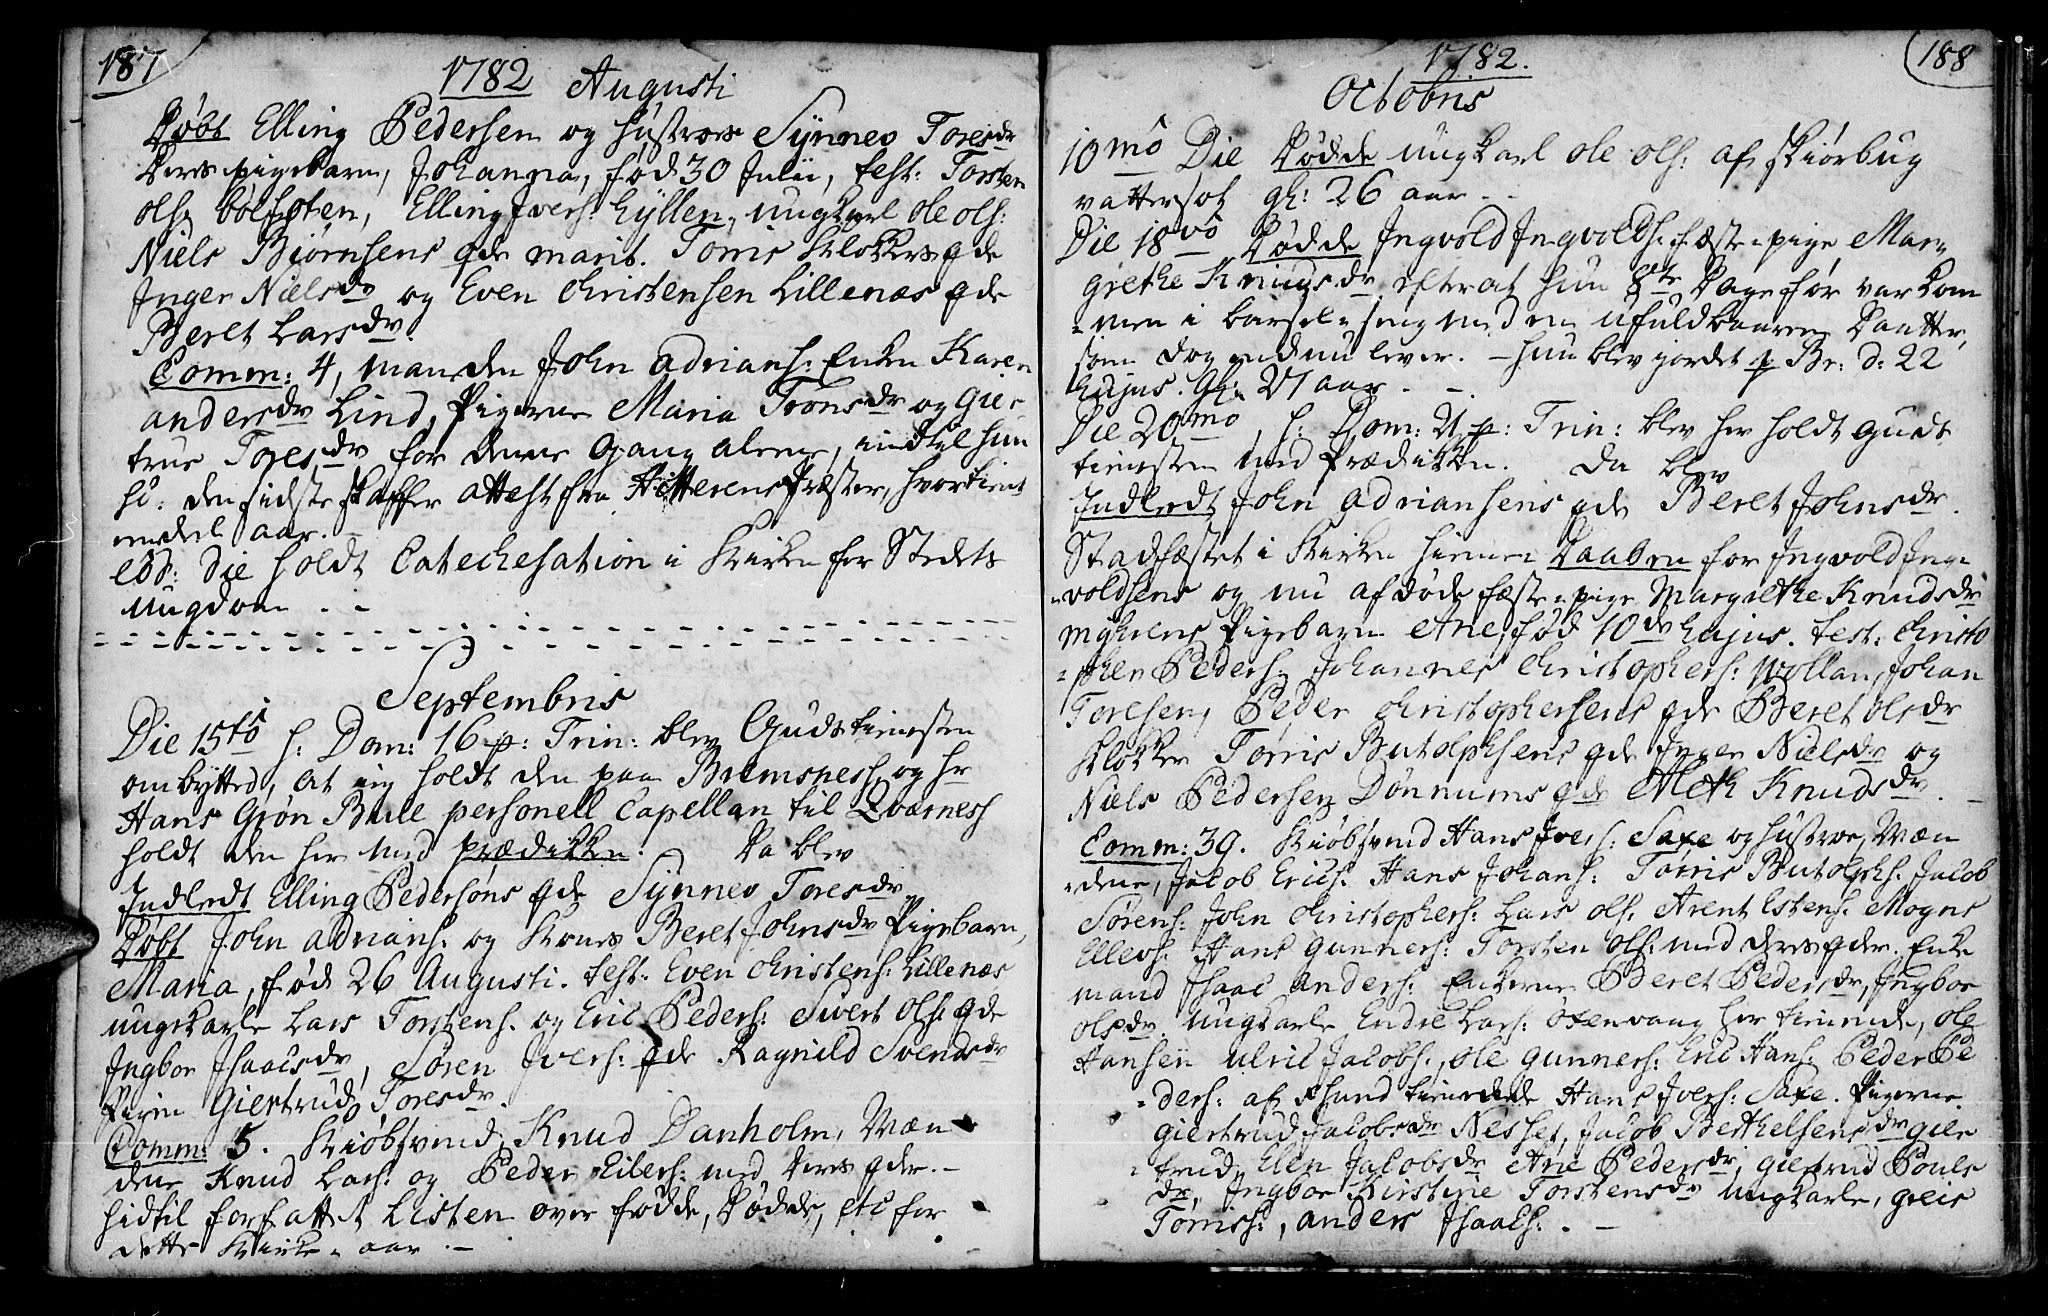 187
1782 Augusti
Døbt Elling Pedersen og Hustroes Synnev Toresdr
Deres pigebarn, Johanna, fød 30 Julii, test: Torsten
Ols: Elling Ivers: Hyllen, ungkarl Ole Ols:
Niels Biørnsens qde Marit. Torris Klokkers qde
Inger Nielsdr og Even Christensen Lillenæs qde
Beret Larsdr.
Comm: 4, manden John Adrians: Enken Karen
Andersdr Lind, Pigerne Maria Tronsdr og Gier
true Toresdr for denne Gang alene, indtil hun
sc: den sidste skaffer Attest fra Hitterens Præster, hvor tient
endeel aar.
eod: die holdt Catechesation i Kirken for Stedets
Ungdom . -
Septembris
Die 15to h: Dom: 16 p: Trin: blev Gudstienesten
ombytted, at ieg holdt den paa Bremsness, og Hr
Hans Grøn Bull personell Capellan til Qvarness
holdt den her med prædikken. Da blev
Indledt Elling Pedersøns qde Synnev Toresdr.
Døbt John Adrians: og Kones Beret Johnsdr Pigebarn,
Maria, fød 26 Augusti. test: Even Christens: Lillenæs
ungkarle Lars Torstens. og Eric Peders: Sivert Ols: qde
Ingbor Isaacsdr, Søren Ivers: qde Ragnild Svendsdr
Pigen Giertrud Toresdr.
Comm: 5. Kiøbsvend Knud Danholm, Mæn
dene Knud Lars: og Peder Eilers: med deres qdr. -
hidtil forfattet Listen over fødde, Dødde, etc for
dette Kirke-aar . -
188
1782.
Octobris
10mo Die Dødde ungkarl Ole Ols: af Skiørbug
vattersot gl: 26 aar . -
Die 18vo Dødde Ingvold Ingvolds: fæste-pige Mar-
grethe Knudsdr efterat hun 8te Dage før var kom
-men i barsel-seng med en ufuldbaaren Daatter,
som dog endnu lever. - hun blev jordet p Br: d: 22
hujus. Gl: 27 aar . -
Die 20mo, h: Dom: 21 p: Trin: blev her holdt Guds
tienesten med Prædikken. Da blev
Indledt John Adriansens qde Beret Johnsdr.
Stadfæstet i Kirken hiemme Daaben for Ingvold Ing-
-voldsens og nu afdøde fæste-pige Margrethe Knudsdr
Myhrens Pigebarn Ane, fød 10de hujus. test: Christo
-pher Peders: Johannes Christophers: Wollan, Johan
Toresen, Peder Christophersens qde Beret Olsdr
Klokker Torris Butolphsens qde Inger Nielsdr og
Niels Pedersen Dønnums qde Aleth Knudsdr. -
Comm: 39. Kiøbsvend Hans Ivers: Saxe og hustroe, Mæn
-dene, Jacob Erics: Hans Johans: Torris Butolphs: Jacob
Sørens: John Christophers: Lars Ols: Arent Estens: Mogns
Ellevs: Hans Gunners: Torsten Ols: med deres qdr. Enke
mand Isaac Anders: Enkerne Beret Pedersdr, Ingbor
Olsdr. Ungkarle Endre Lars: Oxenvaag her tienende, Ole
Hansen Ulric Jacobs:, Ole Gunners: Eric Hans: Peder Pe
-ders: af Sund tienende Hans Ivers: Saxe. Pigerne
Giertrud Jacobsdr Nesset, Jacob Berthelsens dr Gier
-trud, Elen Jacobsdr Ane Pedersdr, Giertrud Pouls
dr, Ingbor Kirstine Torstensdr Ungkarle, Greis
Torris:, Anders Isaacs: . -